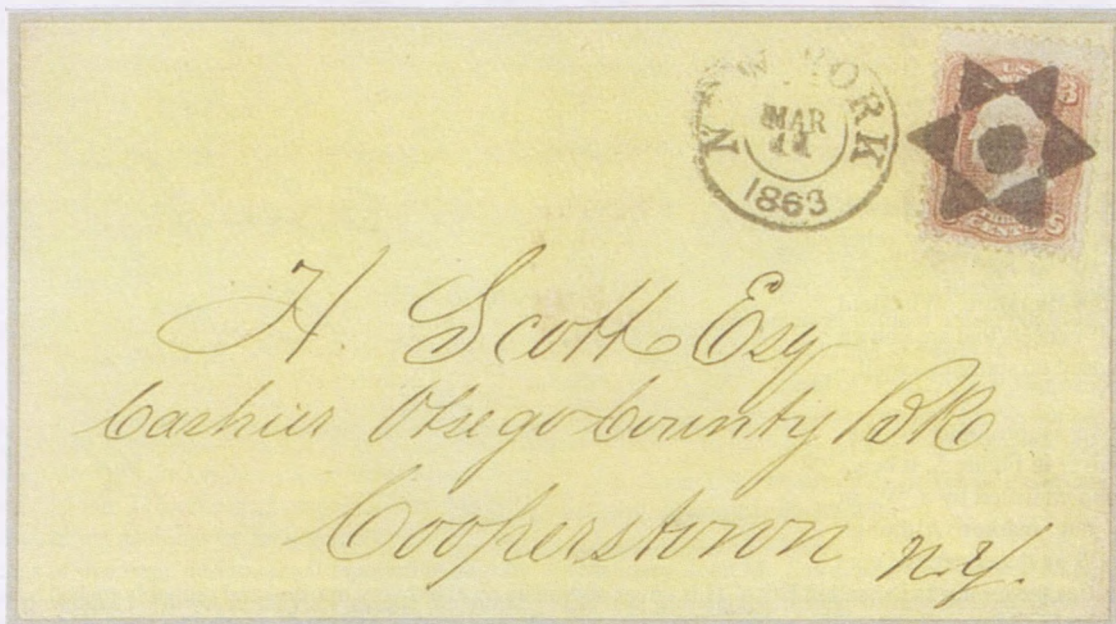 NEW YORK
MAR
11
1863
U.S.
3
THREE
CENTS
H. Scott Esq
Cashier Otsego County Bk
Cooperstown N.Y.